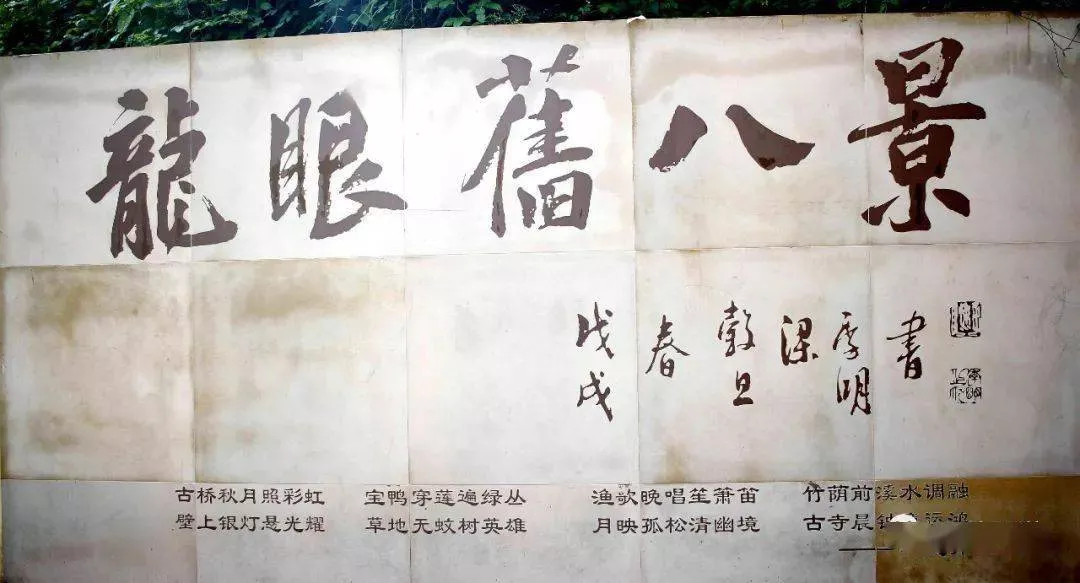 龍眼舊八景
戊戌春穀旦梁季明書
古桥秋月照彩虹 宝鸭穿莲遍绿丛 渔歌晚唱笙箫笛 竹荫前溪水调融
壁上银灯悬光耀 草地无蚊树英雄 月映孤松清幽境 古寺晨钟